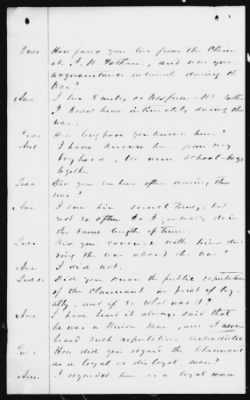 Ques How far do you live from the Claim-
ant, J. H. , and was you
acquainted intimately during the
War?
Ans I live 8 miles or less from Mr.
I knew him intimately during the
war.
Ques How long have you known him?
Ans I have known him from my
boyhood, We were school-boys
together
Ques Did you see him often during the
war?
Ans I saw him several times, but
not so often as I generally do in
the same length of time.
Ques Did you converse with him du-
ring the war about the war?
Ans I did not.
Ques Did you know the public reputation
of the Claimant in point of loy-
alty, and if so what was it?
Ans I have heard it always said that
he was a Union man, and I never
heard such reputation contradicted
Ques How did you regard the Claimant
as a loyal or disloyal man?
Ans I regarded him as a loyal man